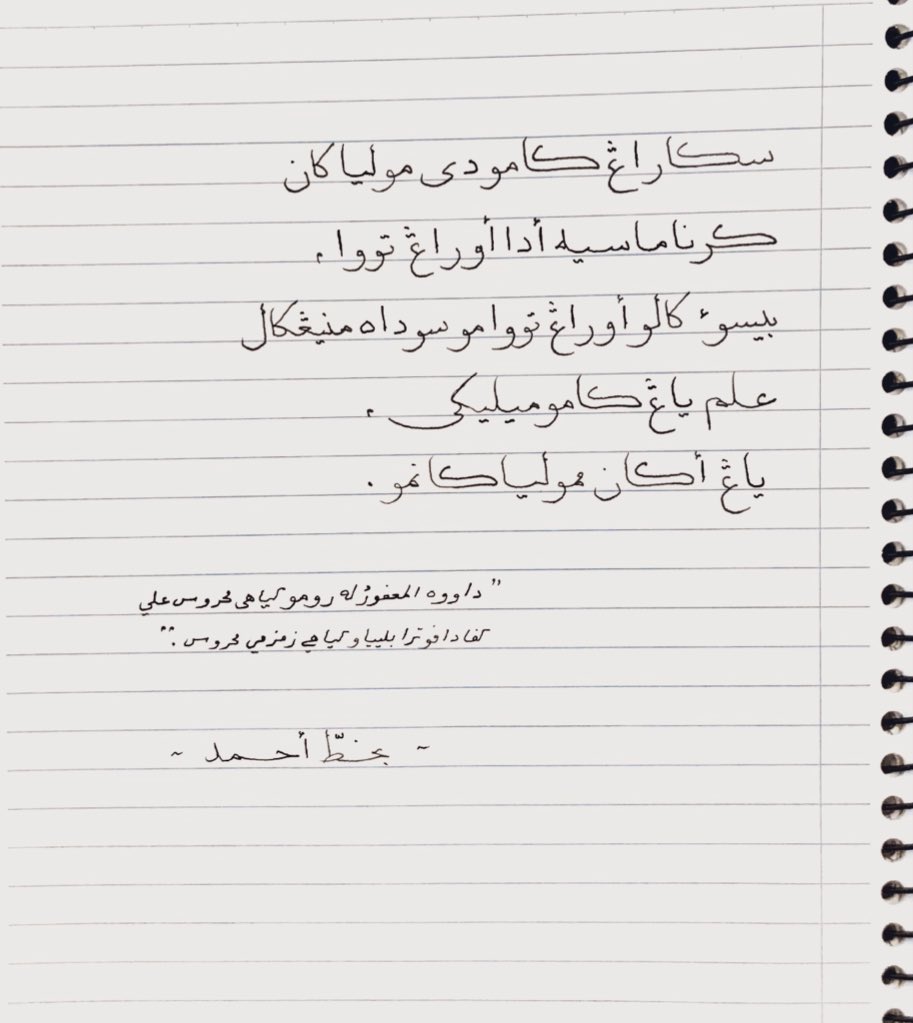 سكاراڠ كامو دى مولياكان
كرنا ماسيه أدا أوراڠ تووا،
بيسوء كالو أوراڠ تووامو سوداه منيڠكال
علم ياڠ كامو ميليكى،
ياڠ أكان مولياكانمو.
"داووه المغفورله رومو كياهى محروس علي
كفادا فوترا بلييا وكياهي زمزمي محروس."
~ بخطّ أحمد ~